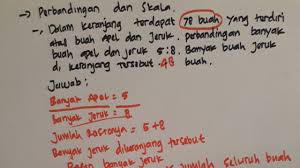 → Perbandingan dan Skala.
- Dalam keranjang terdapat 78 buah yang terdiri
atas buah apel dan jeruk. perbandingan banyak
buah apel dan jeruk 5:8. Banyak buah jeruk
di keranjang tersebut 48 buah
Jawab:
Banyak Apel = 5
Banyak Jeruk = 8
Jumlah Rasionya = 5+8
Banyak Jeruk dikeranjang tersebut
banyak jeruk
jumlah seluruh buah